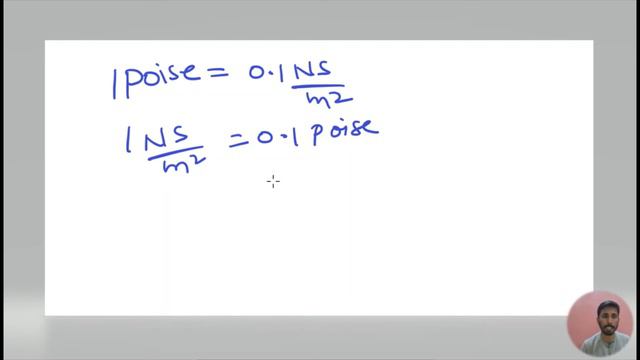 1 Poise = 0.1 NS/m2
1 NS/m2 = 0.1 Poise